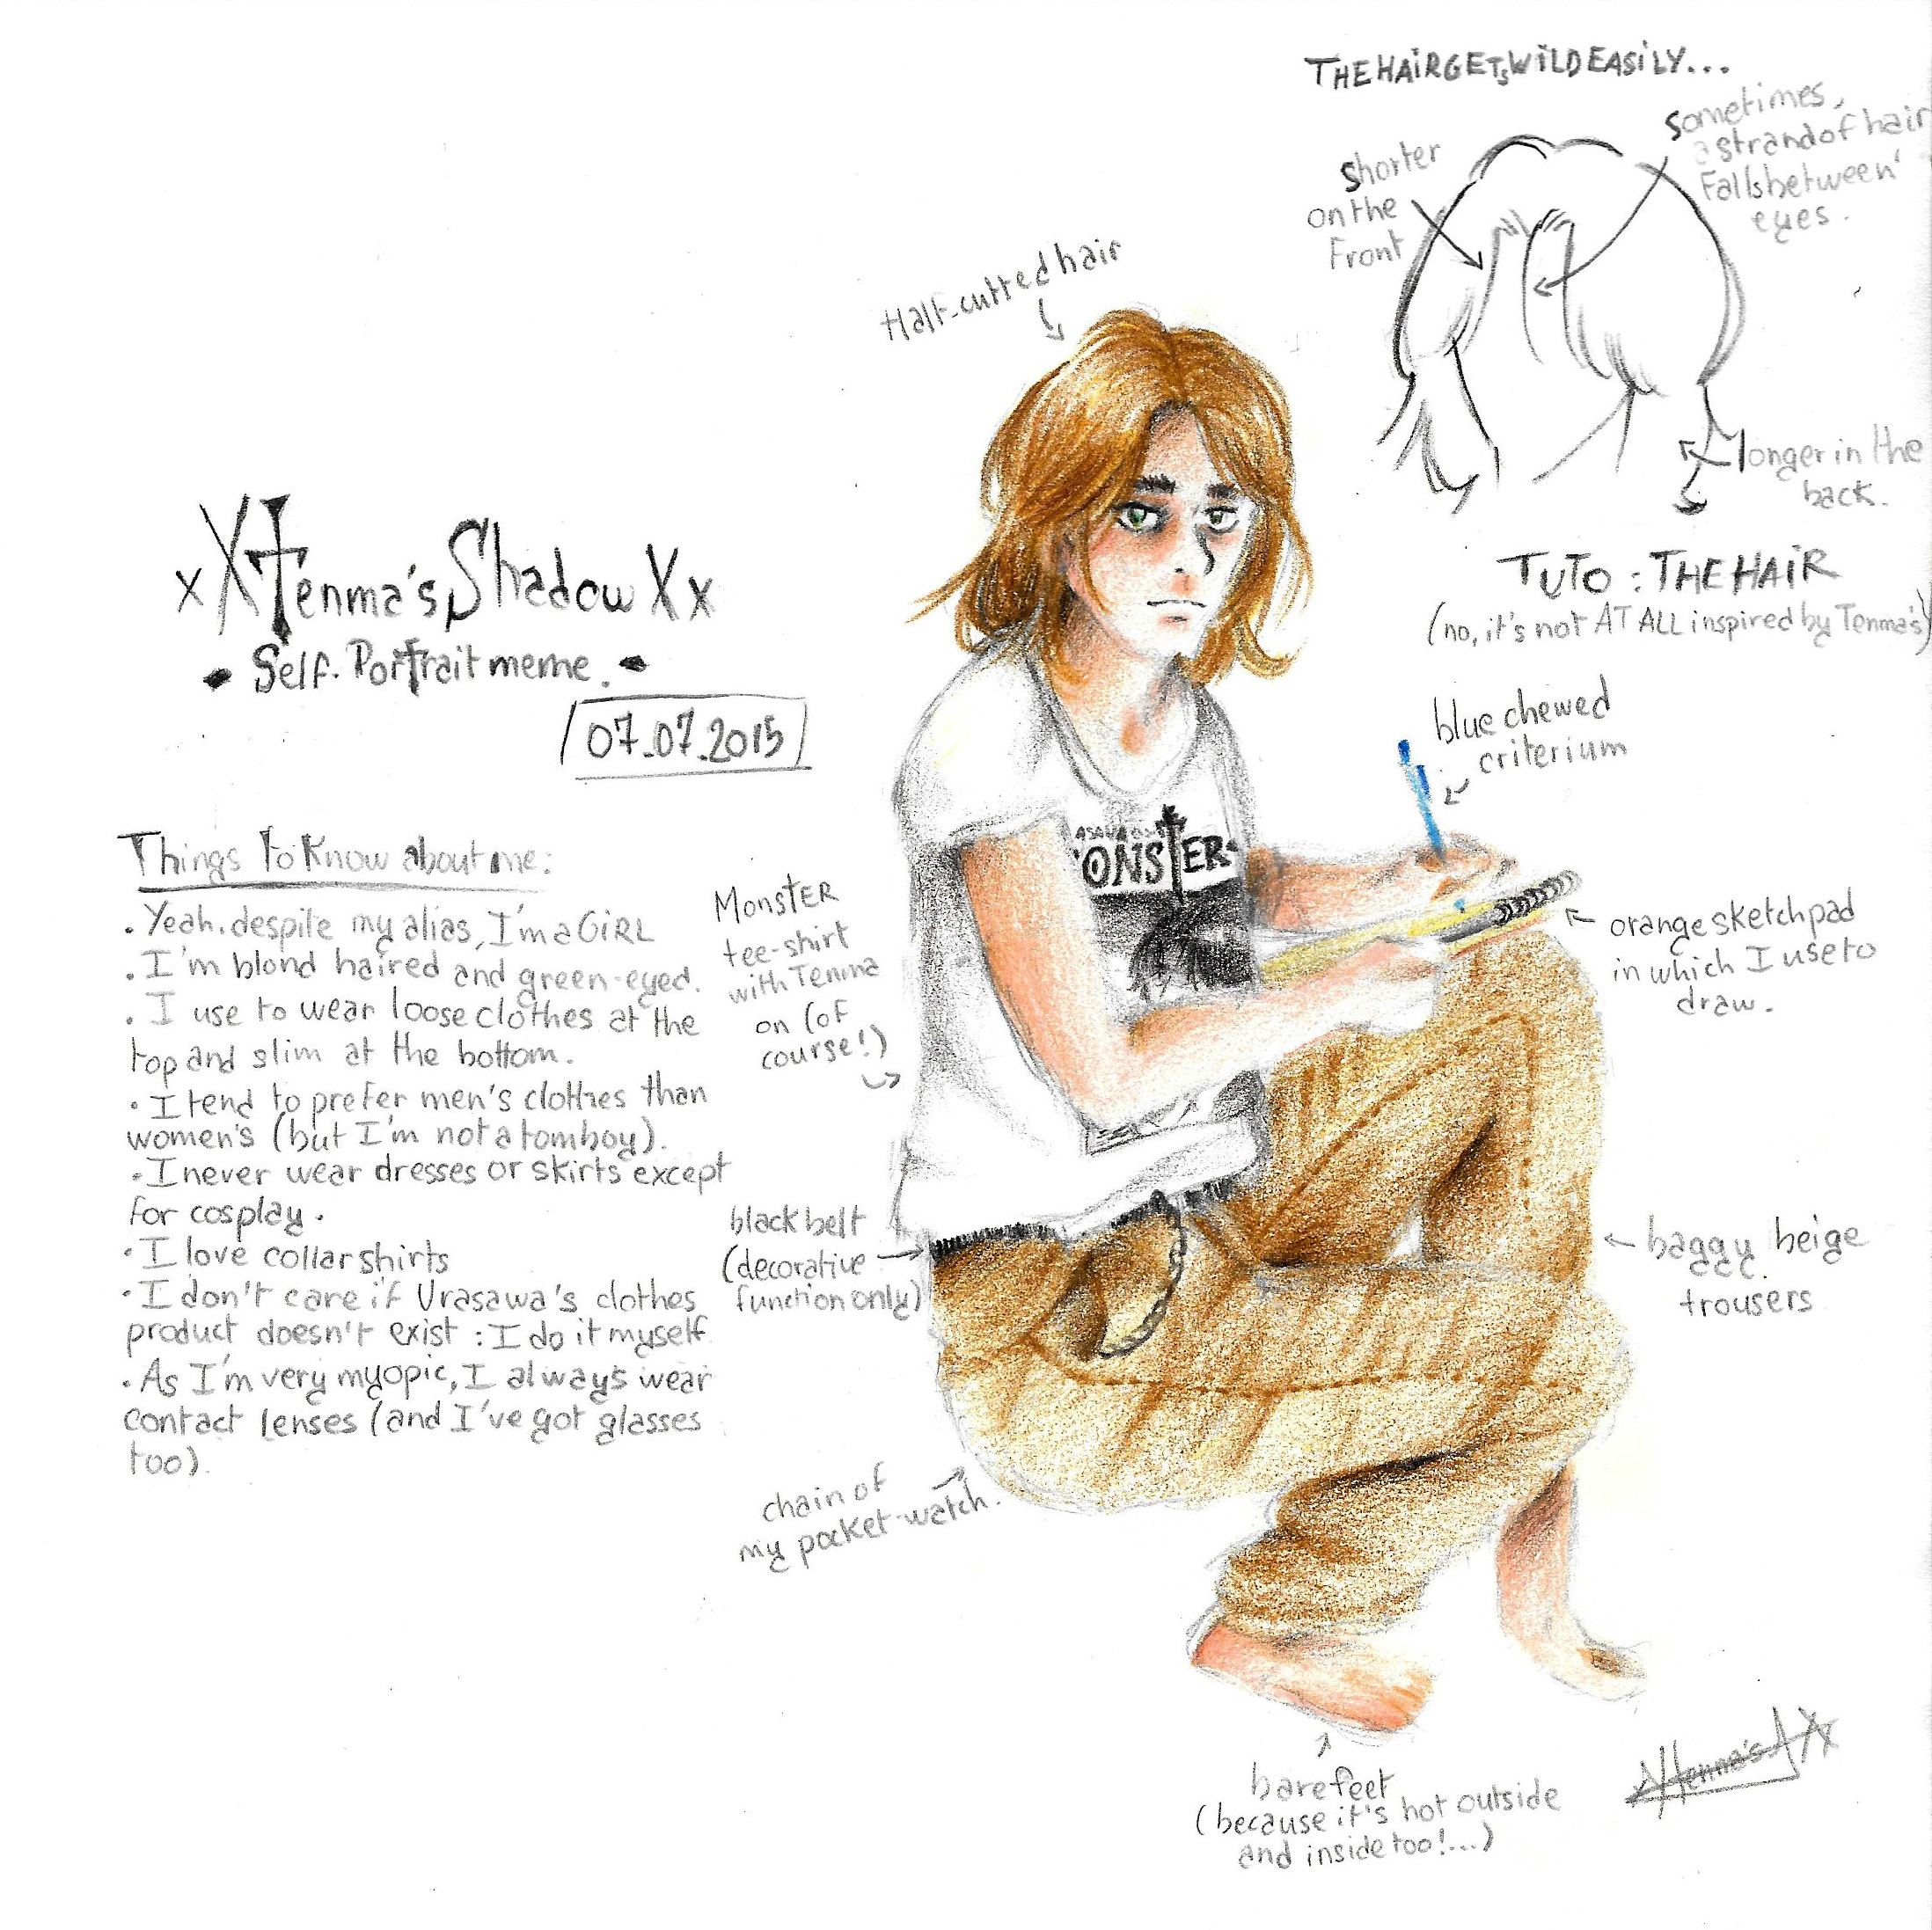 THE HAIR GETS WILD EASILY...
sometimes,
a strand of hair
Falls between
eyes.
shorter
on the
Front
Half-cutted hair
longer in the
back.
TUTO : THE HAIR
(no, it's not AT ALL inspired by Tenma's)
xXTenma's Shadow Xx
• Self-Portrait meme. •
07.07.2015
blue chewed
criterium
Things to Know about me:
• Yeah, despite my alias, I'm a GIRL
• I'm blond haired and green-eyed.
• I use to wear loose clothes at the
top and slim at the bottom.
• I tend to prefer men's clothes than
women's (but I'm not a tomboy).
• I never wear dresses or skirts except
for cosplay.
• I love collar shirts
• I don't care if Urasawa's clothes
product doesn't exist : I do it myself.
• As I'm very myopic, I always wear
contact lenses (and I've got glasses
too).
MonsTER
tee-shirt
with Tenma
on (of
course!)
ONSTER
orange sketchpad
in which I use to
draw.
black belt
(decorative
function only)
baggy beige
trousers
chain of
my pocket-watch.
bare feet
(because it's hot outside
and inside too!...)